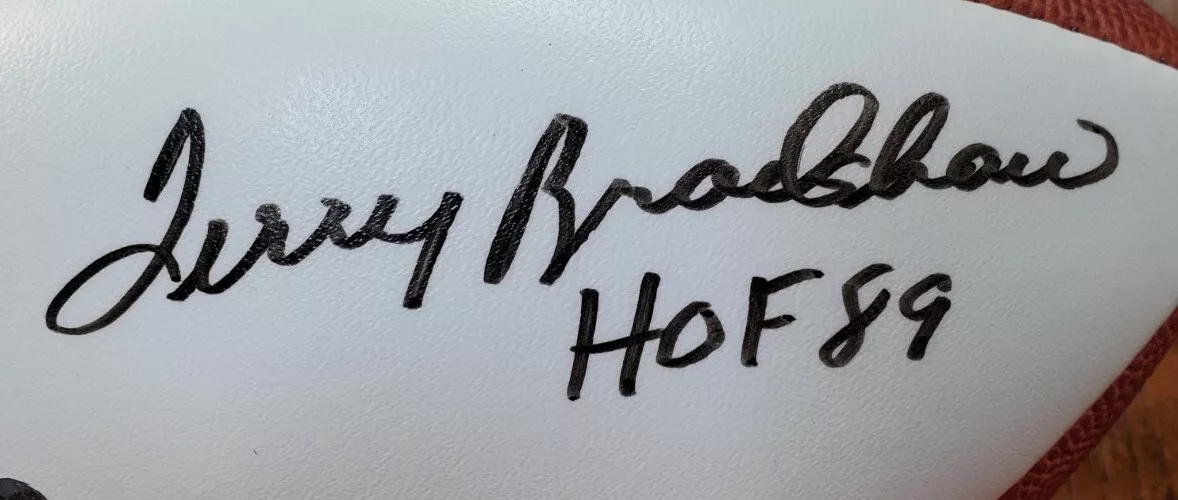 Terry Bradshaw
HOF 89